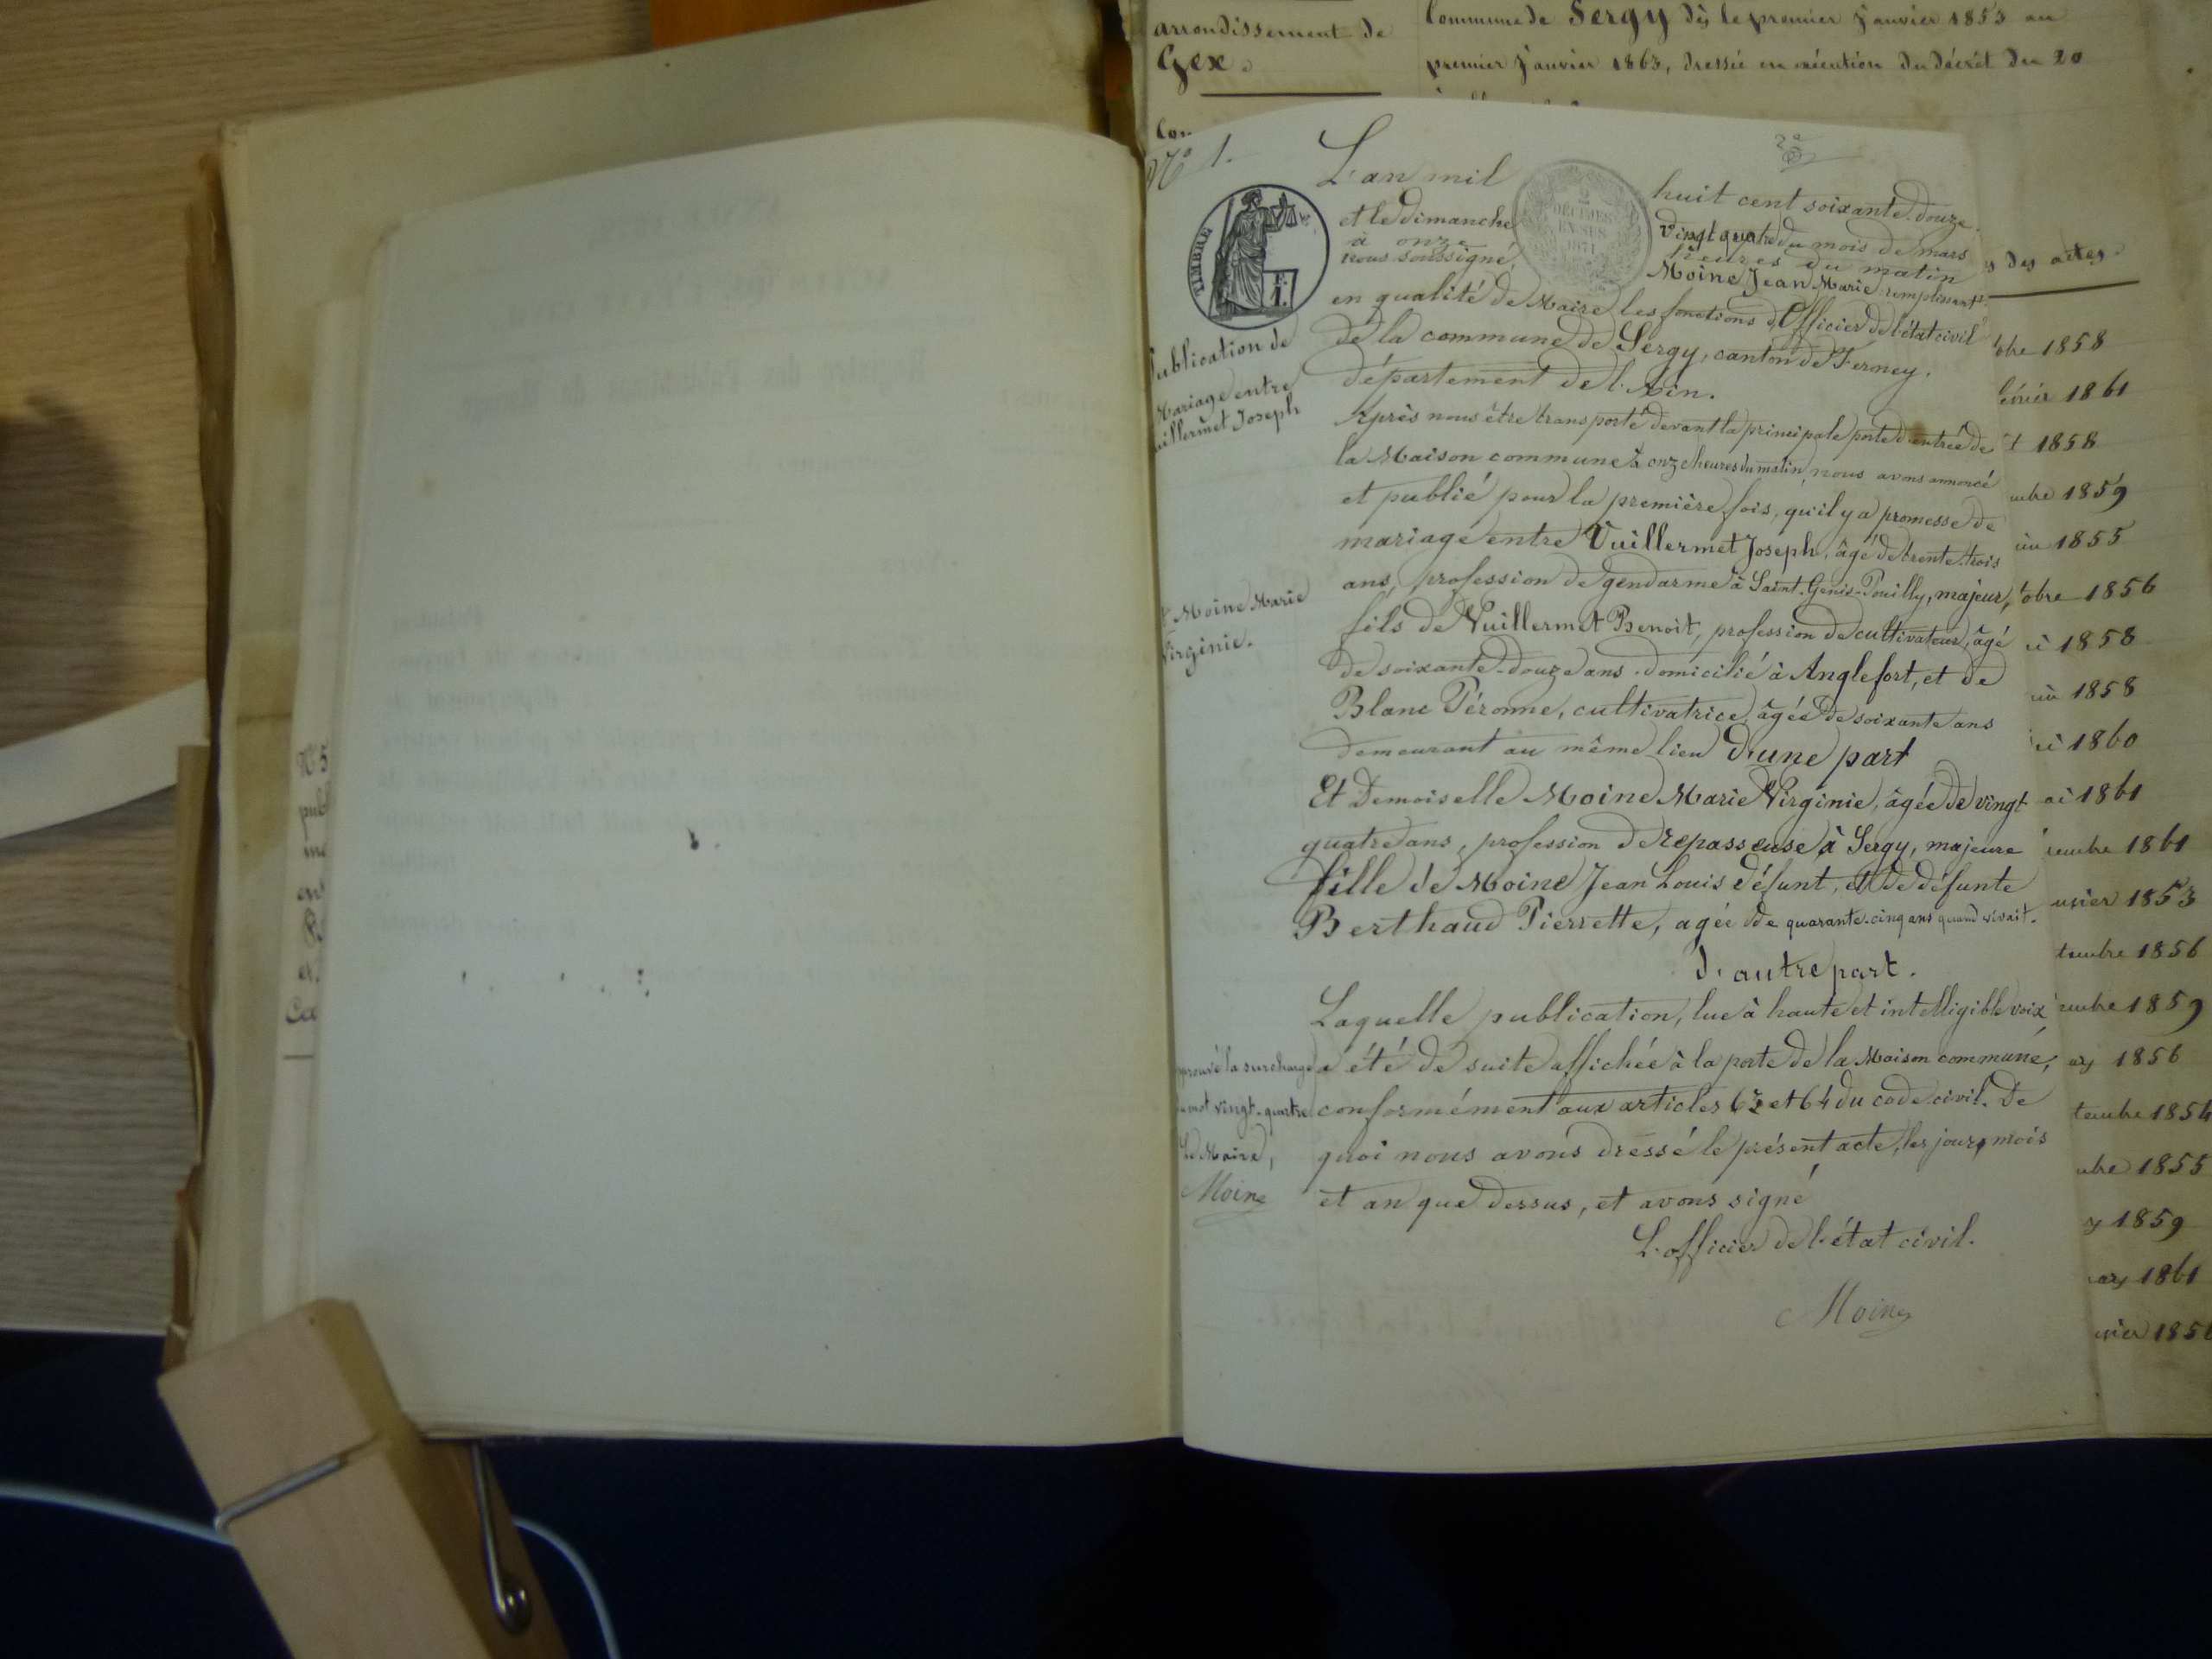 arrondissement de
Gex.
Commune de Sergy dès le premier janvier 1853 au
premier janvier 1863, dressée en exécution du décret du 20
N° 1.
2e
L'an mil huit cent soixante-douze.
et le dimanche vingt quatre du mois de mars
à onze heures du matin
nous soussigné, Moine Jean Marie remplissant
en qualité de Maire les fonctions d'Officier de l'état civil
de la commune de Sergy, canton de Ferney,
département de l'Ain.
TIMBRE
1F.
2
DÉCIMES
EN SUS
1871
Publication de
Mariage entre
Vuillermet Joseph
& Moine Marie
Virginie.
Après nous être transporté devant la principale porte d'entrée de
la Maison commune à onze heures du matin, nous avons annoncé
et publié pour la première fois, qu'il y a promesse de
mariage entre Vuillermet Joseph, âgé de trente-trois
ans, profession de gendarme à Saint-Genis-Pouilly, majeur,
fils de Vuillermet Benoit, profession de cultivateur, âgé
de soixante-douze ans domicilié à Anglefort, et de
Blanc Péronne, cultivatrice, âgée de soixante ans
demeurant au même lieu d'une part
Et Demoiselle Moine Marie Virginie, âgée de vingt
quatre ans, profession de repasseuse à Sergy, majeure
fille de Moine Jean Louis défunt, et de défunte
Berthaud Pierrette, agée de quarante-cinq ans quand vivait.
d'autre part.
Laquelle publication, lue à haute et intelligible voix
a été de suite affichée à la porte de la Maison commune,
conformément aux articles 63 et 64 du code civil. De
quoi nous avons dressé le présent acte, les jour, mois
et an que dessus, et avons signé
L'officier de l'état civil.
Moine
approuvé la surcharge
du mot vingt-quatre
Le Maire,
Moine
s des actes
obre 1858
février 1861
t 1858
mbre 1859
in 1855
tobre 1856
i 1858
in 1858
i 1860
ai 1861
embre 1861
nvier 1853
tembre 1856
embre 1859
ars 1856
tembre 1854
mbre 1855
1859
ars 1861
vrier 185
N° 5
pub
ma
en
et
Ca